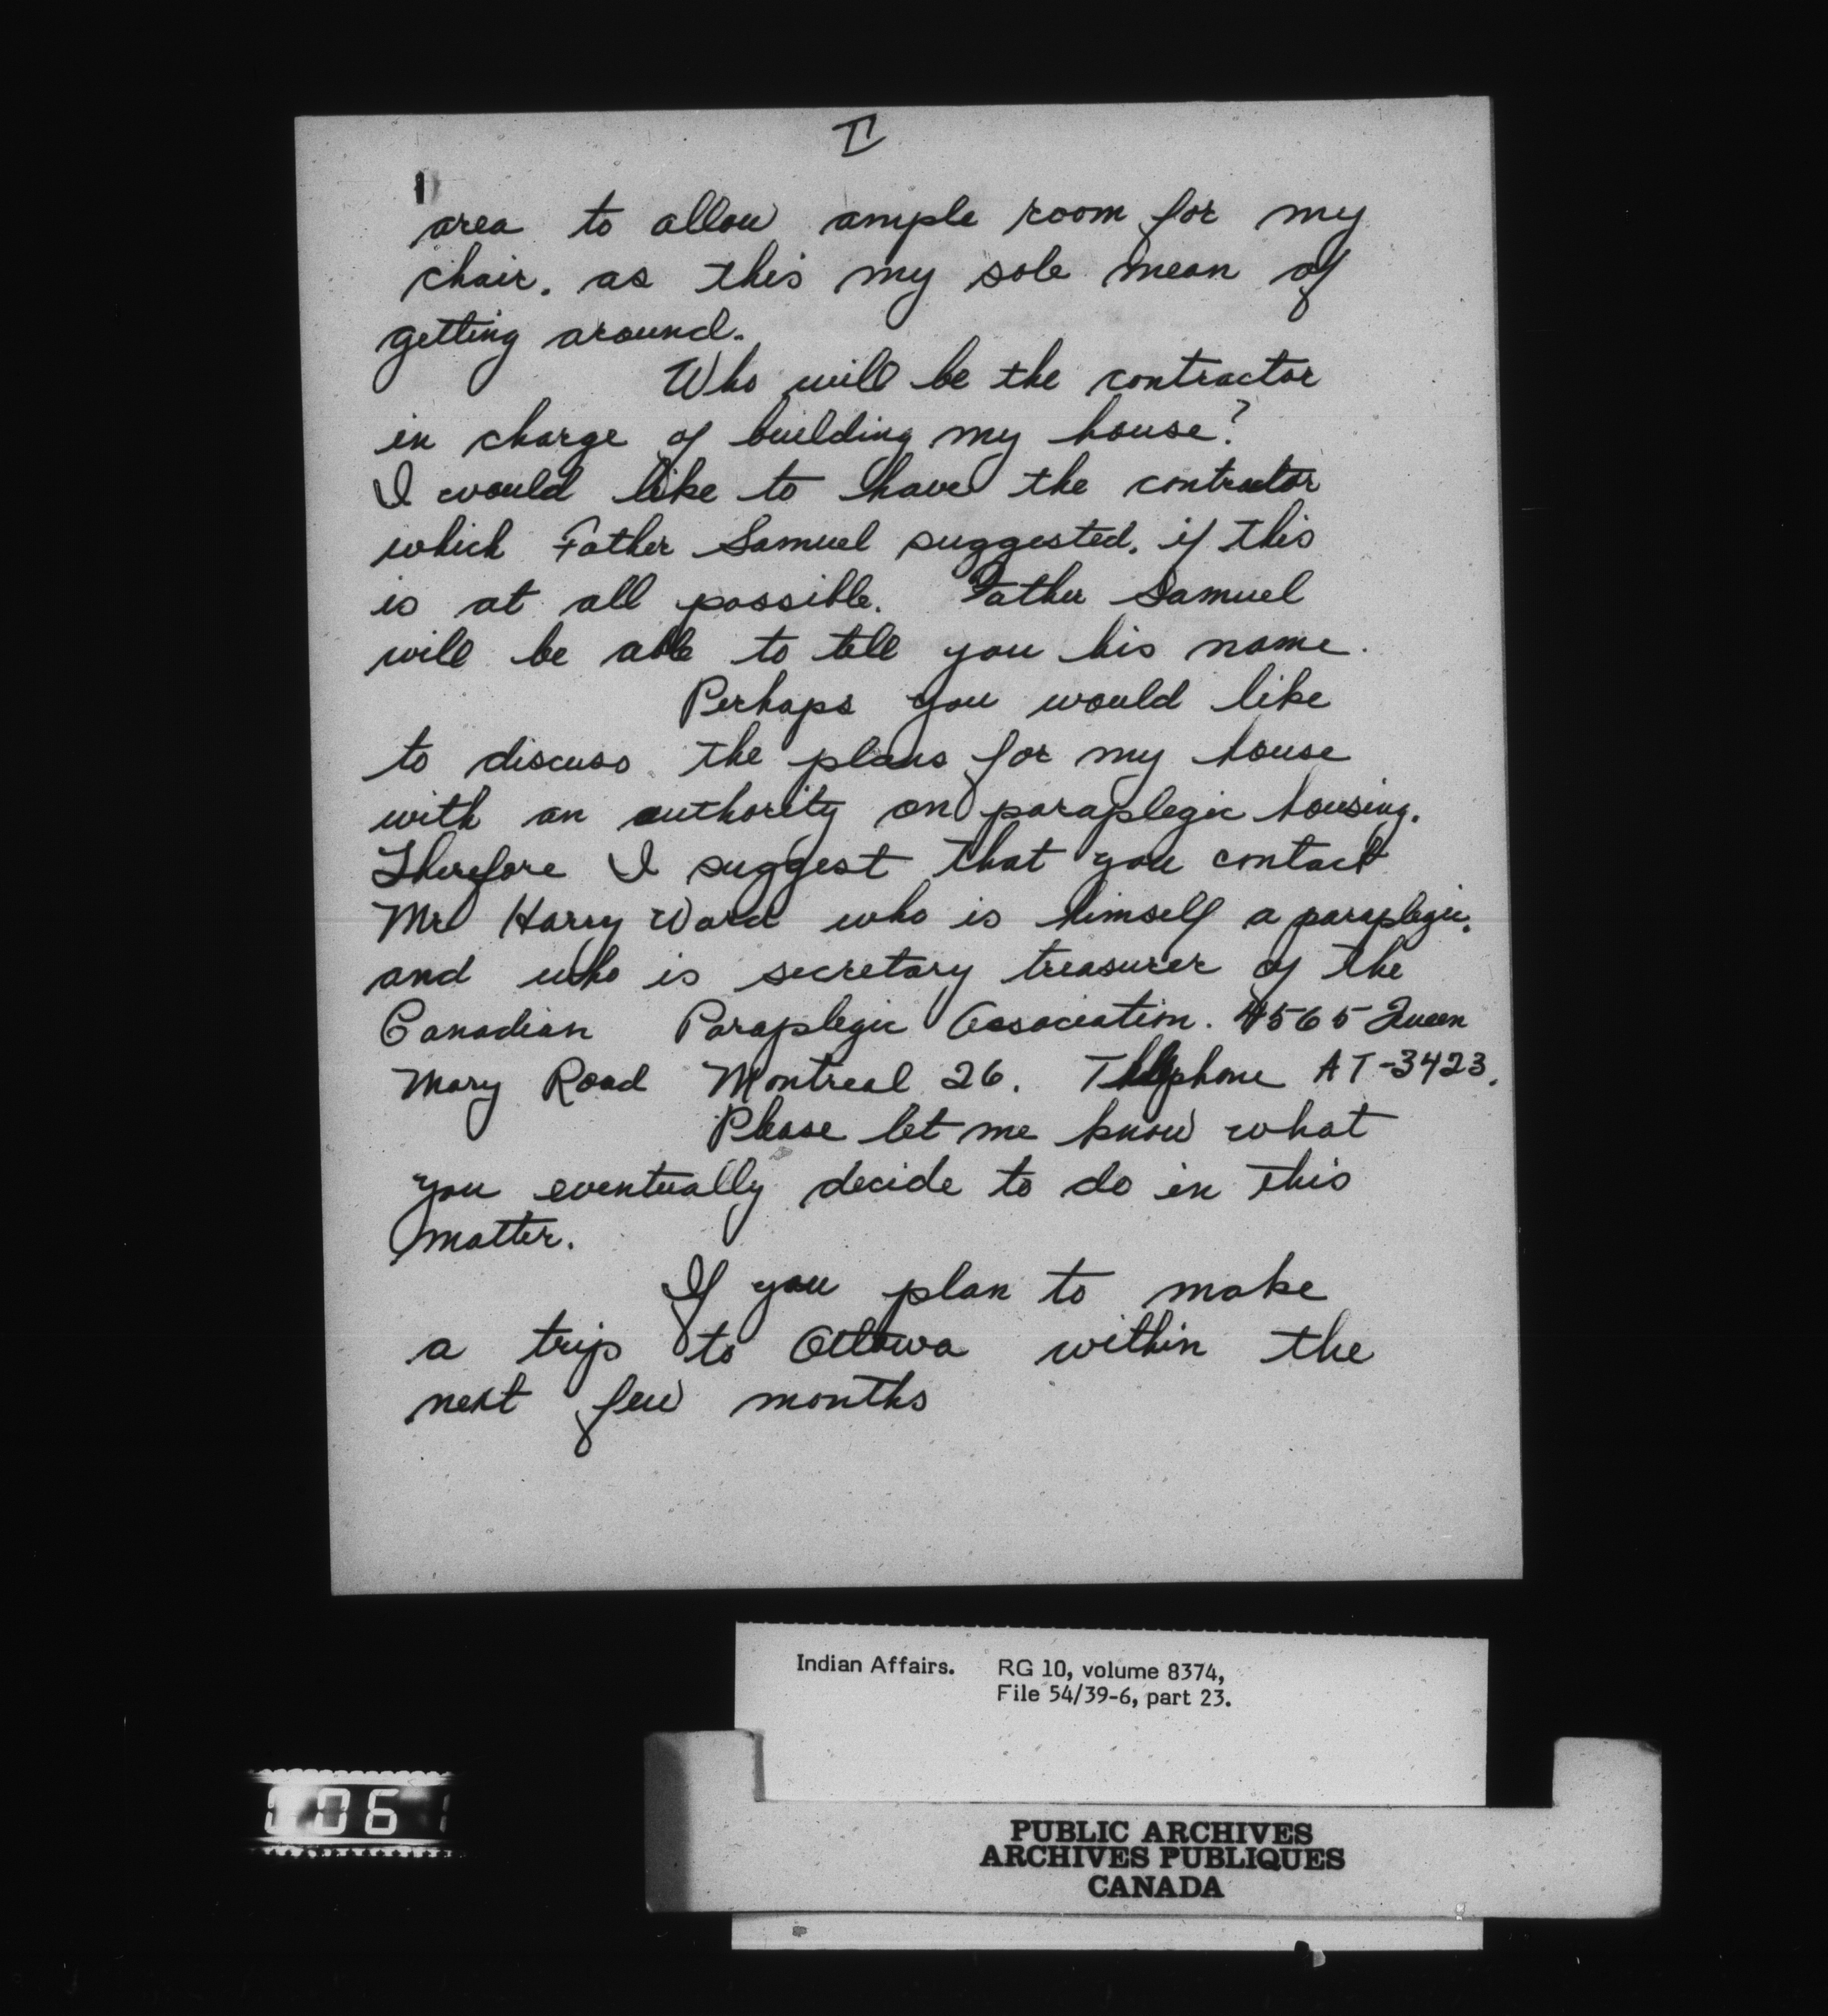 II
area to allow ample room for my
chair. as this my sole mean of
getting around.
Who will be the contractor
in charge of building my house?
I would like to have the contractor
which Father Samuel suggested. if this
is at all possible. Father Samuel
will be able to tell you his name.
Perhaps you would like
to discuss the plans for my house
with an authority on paraplegic housing.
Therefore I suggest that you contact
Mr Harry Ward who is himself a paraplegic.
and who is secretary treasurer of the
Canadian Paraplegic Association. 4565 Queen
Mary Road Montreal 26. Telephone AT-3423.
Please let me know what
you eventually decide to do in this
matter.
If you plan to make
a trip to Ottawa within the
next few months
Indian Affairs. RG 10, volume 8374,
File 54/39-6, part 23.
PUBLIC ARCHIVES
ARCHIVES PUBLIQUES
CANADA